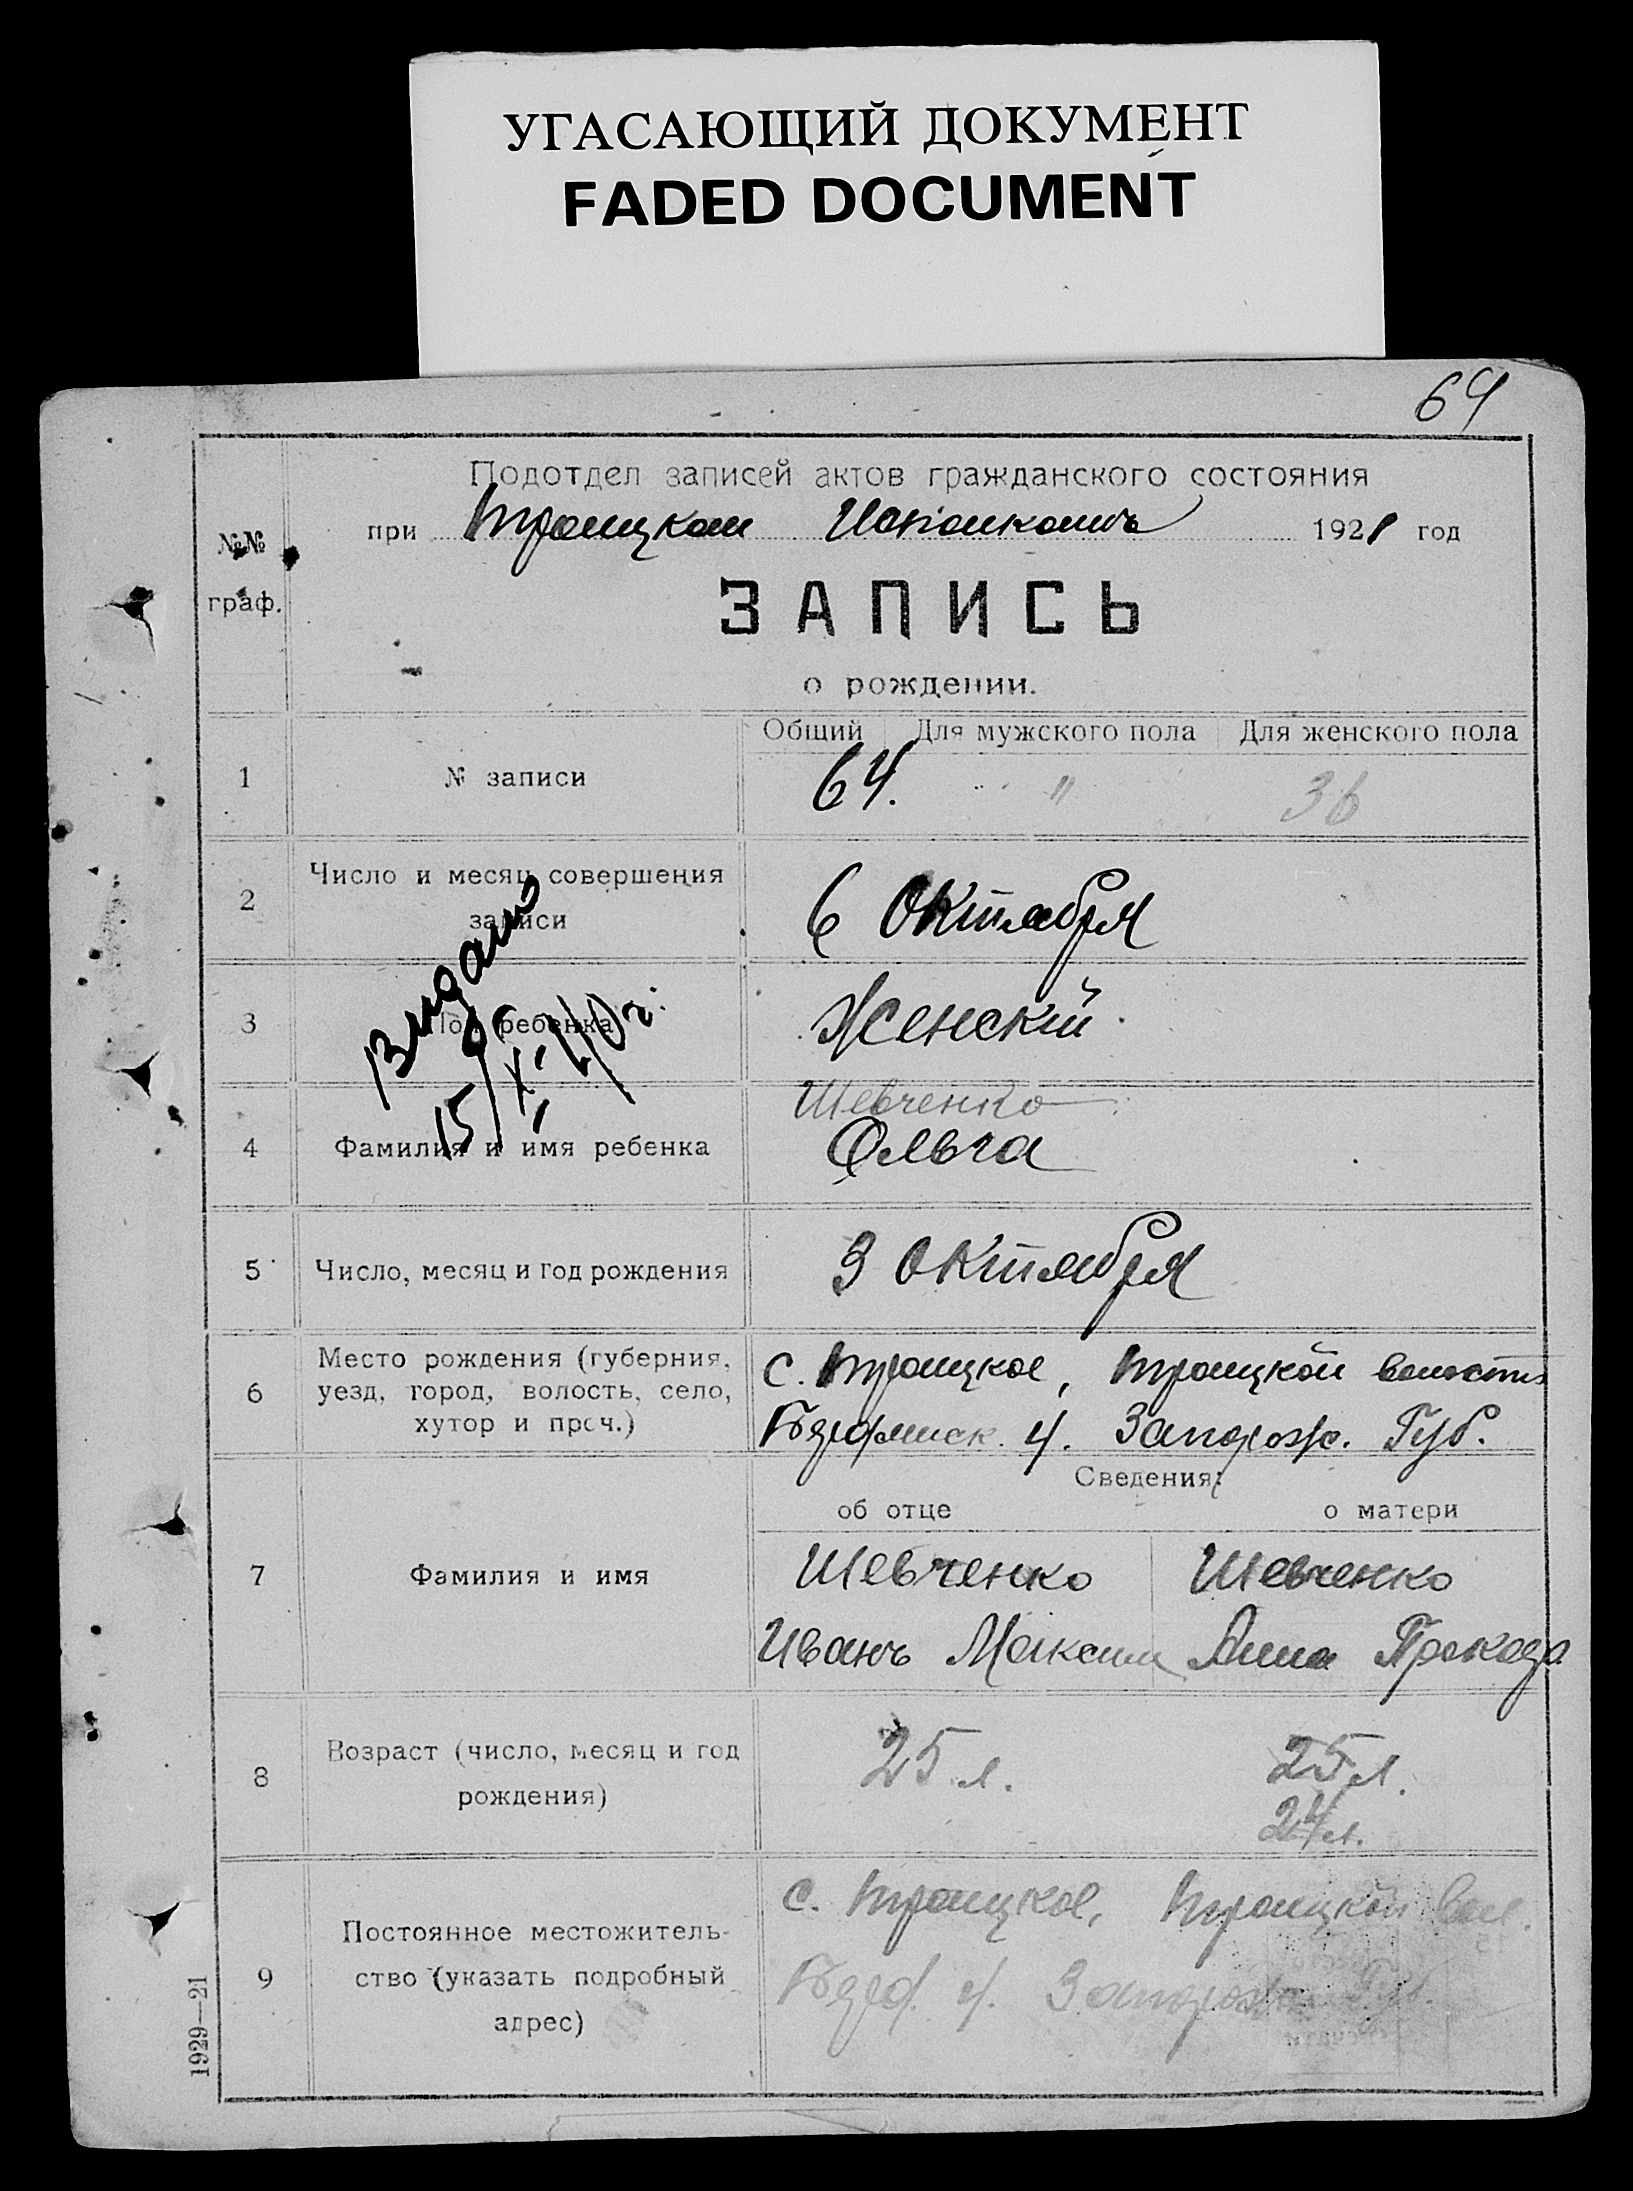 УГАСАЮЩИЙ ДОКУМЕНТ
FADED DOCUMENT
64
Подотдел записей актов гражданского состояния
№№ граф.
при Троицком Исполкомъ 1921 год
ЗАПИСЬ
о рождении.
Общий Для мужского пола Для женского пола
1 № записи 64. " 36
2 Число и месяц совершения записи 6 Октября
3 Пол ребенка Женскій
Видано
15/XI 40 г.
Шевченко
4 Фамилия и имя ребенка Ольга
5 Число, месяц и год рождения 3 Октября
6 Место рождения (губерния, уезд, город, волость, село, хутор и проч.)
с. Троицкое, Троицкой волости
Бердянск. у. Запорож. Губ.
Сведения:
об отце о матери
7 Фамилия и имя
Шевченко Шевченко
Иванъ Максим Анна
8 Возраст (число, месяц и год рождения)
25 л. 25 л.
24 л.
9 Постоянное местожительство (указать подробный адрес)
с. Троицкое, Троицкой вол.
Берд. у. Запорож. Губ.
1929—21